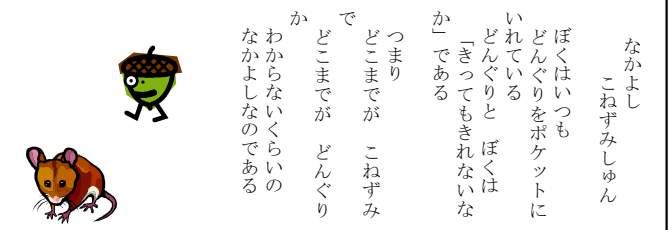 なかよし
こねずみしゅん
ぼくはいつも
どんぐりをポケットに
いれている
どんぐりと　ぼくは
「きってもきれないな
か」である
つまり
どこまでが　こねずみ
で
どこまでが　どんぐり
か
わからないくらいの
なかよしなのである